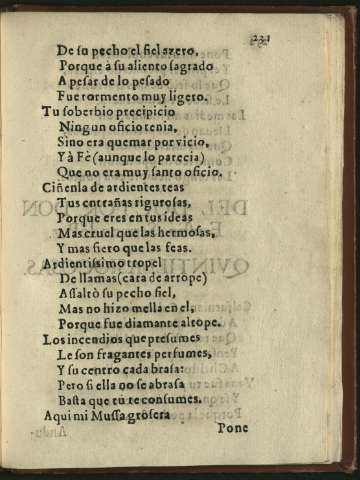 231
De su pecho el fiel azero,
Porque à su aliento sagrado
A pesar de lo pesado
Fue tormento muy ligero.
Tu soberbio precipicio
Ningun oficio tenia,
Sino era quemar por vicio,
Y à Fè (aunque lo parecia)
Que no era muy santo oficio.
Ciñenla de ardientes teas
Tus entrañas rigurosas,
Porque eres en tus ideas
Mas cruel que las hermosas,
Y mas fiero que las feas.
Ardientissimo tropel
De llamas (cara de arrope)
Assaltò su pecho fiel,
Mas no hizo mella en el,
Porque fue diamante al tope.
Los incendios que presumes
Le son fragantes perfumes,
Y su centro cada brasa:
Pero si ella no se abrasa
Basta que tu te consumes.
Aqui mi Mussa grosera
Pone